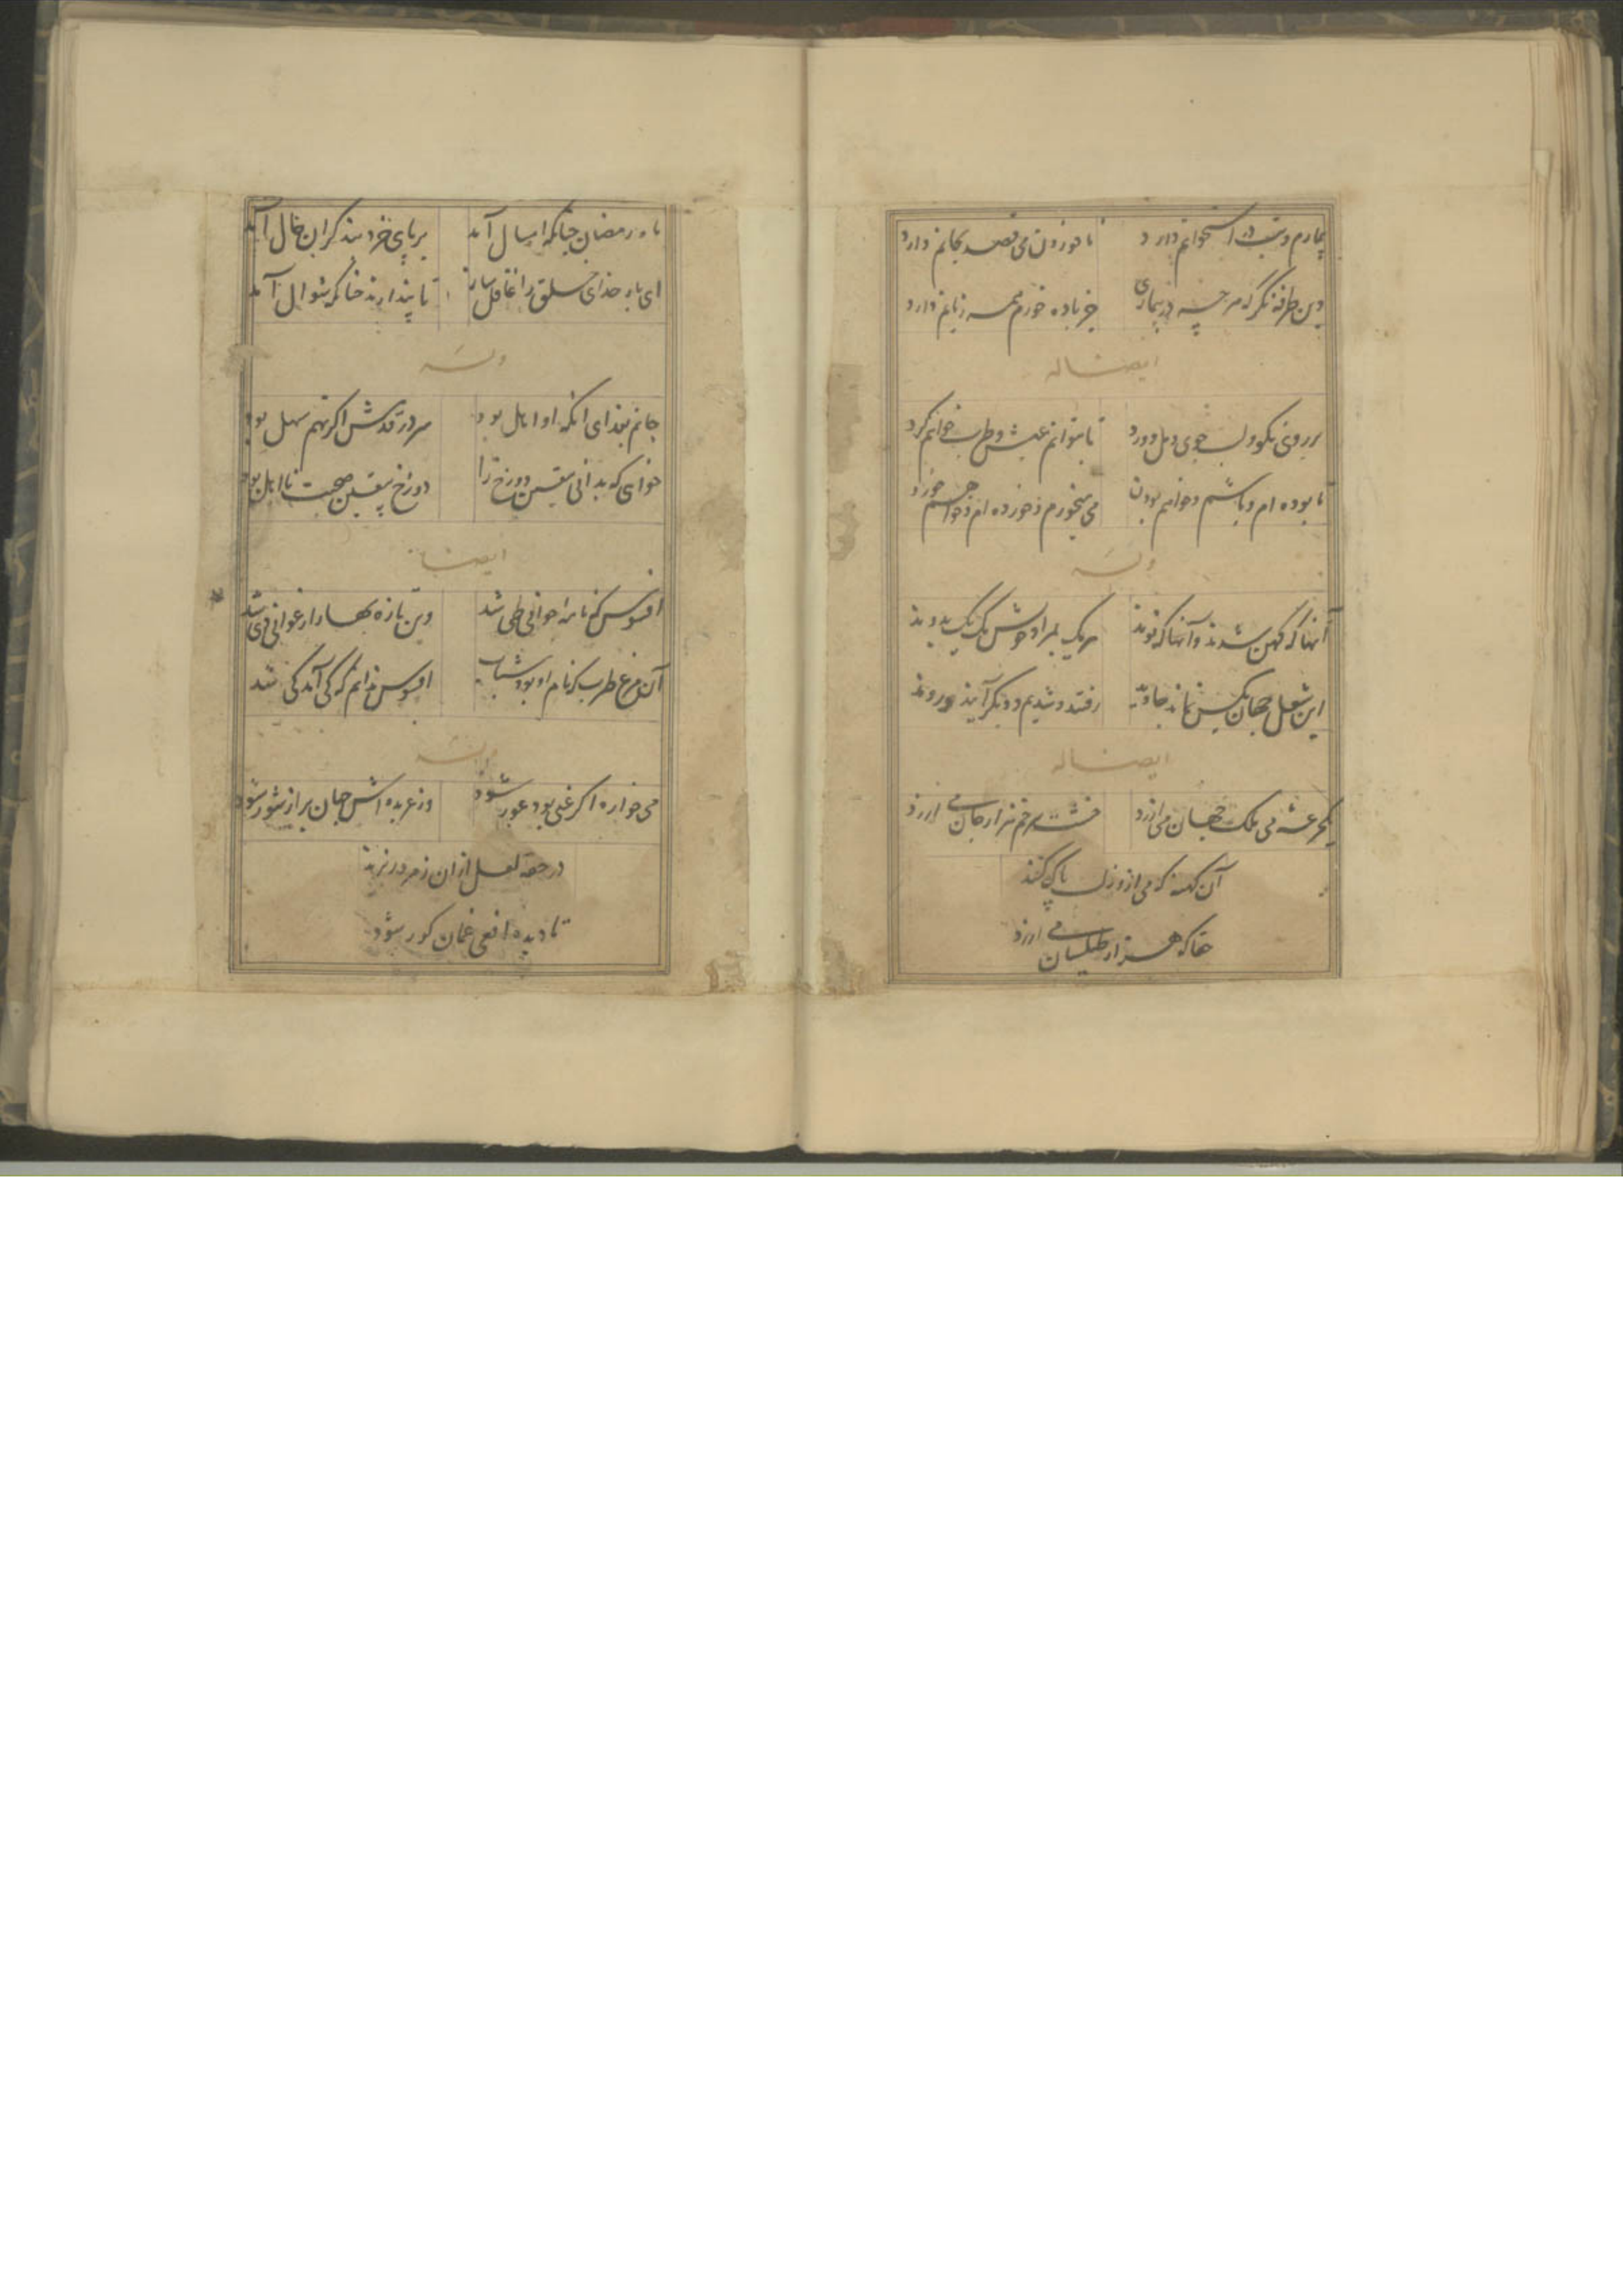 بیمارم و تب در استخوانم دارد    ناخوردن می قصد بجانم دارد
وین طرفه نگر که هر چه در بیماری    جز باده خورم همه زیانم دارد
ایضا له
بر روی نکو و لب جوی و مل و ورد    تا بتوانم عیش و طرب خواهم کرد
تا بوده ام و باشم و خواهم بودن    می میخورم و خورده ام و خواهم خورد
وله
آنها که کهن شدند و آنها که نوند    هر یک بمراد خویش یک یک بدوند
این شغل جهان بکس نماند جاوید    رفتند و شدیم و دیگر آیند و روند
ایضا له
یکجرعه می ملک جهان می ارزد    خشت سر خم هزار جان می ارزد
آن کهنه که می ازو بلب پاک کنند
حقا که هزار طیلسان می ارزد
ماه رمضان چنانکه امسال آمد    بر پای خرد بند گران حال آمد
ای بار خدای خلق را غافل ساز    تا پندارند خنا که شوال آمد
وله
جانم بفدای آنکه او اهل بود    سر در قدمش اگر نهم سهل بود
خواهی که بدانی بیقین دوزخ را    دوزخ بیقین صحبت نااهل بود
ایضا
افسوس که نامه جوانی طی شد    وین تازه بهار ارغوانی دی شد
آن مرغ طرب که نام او بود شباب    افسوس ندانم که کی آمد کی شد
وله
می خواره اگر غنی بود عور شود    وز عربده اش جهان پر از شور شود
در حقه لعل از آن زمرد ریزند
تا دیده افعی غمان کور شود